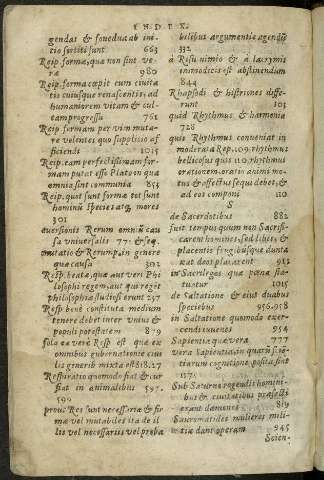 INDEX.
gendas & fovedua ab ini-
cio sortiti sunt 663
Reip. forma, quæ non sit ve-
ra 980
Reip. forma cœpit cum civita
tis cuiusque renascentis, ad
humaniorem vitam & cul-
tum progressu 761
Reip. formam per vim muta-
re volentes quo supplicio af
ficiendi 1015
Reip. eam perfectissimam for-
mam putat esse Platoon qua
omnia sint communia 853
Reip. quot sunt formæ tot sunt
hominū species atq; mores
301
aversionis Rerum omniū cau
sa vniversalis 771 & seq.
mutatio & Rerump. in genere
quæ causa 302
Resp. beatæ, quæ aut veri Phi
losophi regent, aut qui reget
philosophiæ studiosi erunt 257
Resp bene constituta medium
tenere debet inter unius &
populi potestatem 879
sola ea verè Resp est quæ ex
omnibus gubernationis civi
lis generib. mixta est 818.27
Respiratio quomodo fiat & cur
fiat in animalibus 597.
599
prout Res sunt necessariæ & fir
mæ vel mutabiles ita de il
lis vel necessariis vel proba
bilibus argumentis agendū
332
à Risu nimio & à lacrymis
immodicis est abstinendum
844
Rhapsodi & histriones diffe-
runt 103
quid Rhythmus & harmonia
728
quis Rhythmus conveniat in
moderata Rep. 109. rhythmus
bellicosus quis 110. rhythmum
orationem oratio animi mo-
tus & affectus sequi debet, &
ad eos componi 110
S
de Sacerdotibus 882
fuit tempus quum non Sacrifi-
carent homines, sed libis, &
placentis frugibusque dunta
xat deos placarent 912
in Sacrilegos quæ pœna sta-
tuatur 1015
de Saltatione & eius duabus
speciebus 956.958
in Saltatione quomodo exer-
cendi iuvenes 954
Sapientia quæ vera 777
vera Sapientia, in quarū sciē-
tiarum cognitione posita sint
1171
Sub Saturno regendis homini-
bus & civitatibus præfecti
erant dæmones 819
Sauromatides mulieres mili-
tiæ dant operam 945
Scien-